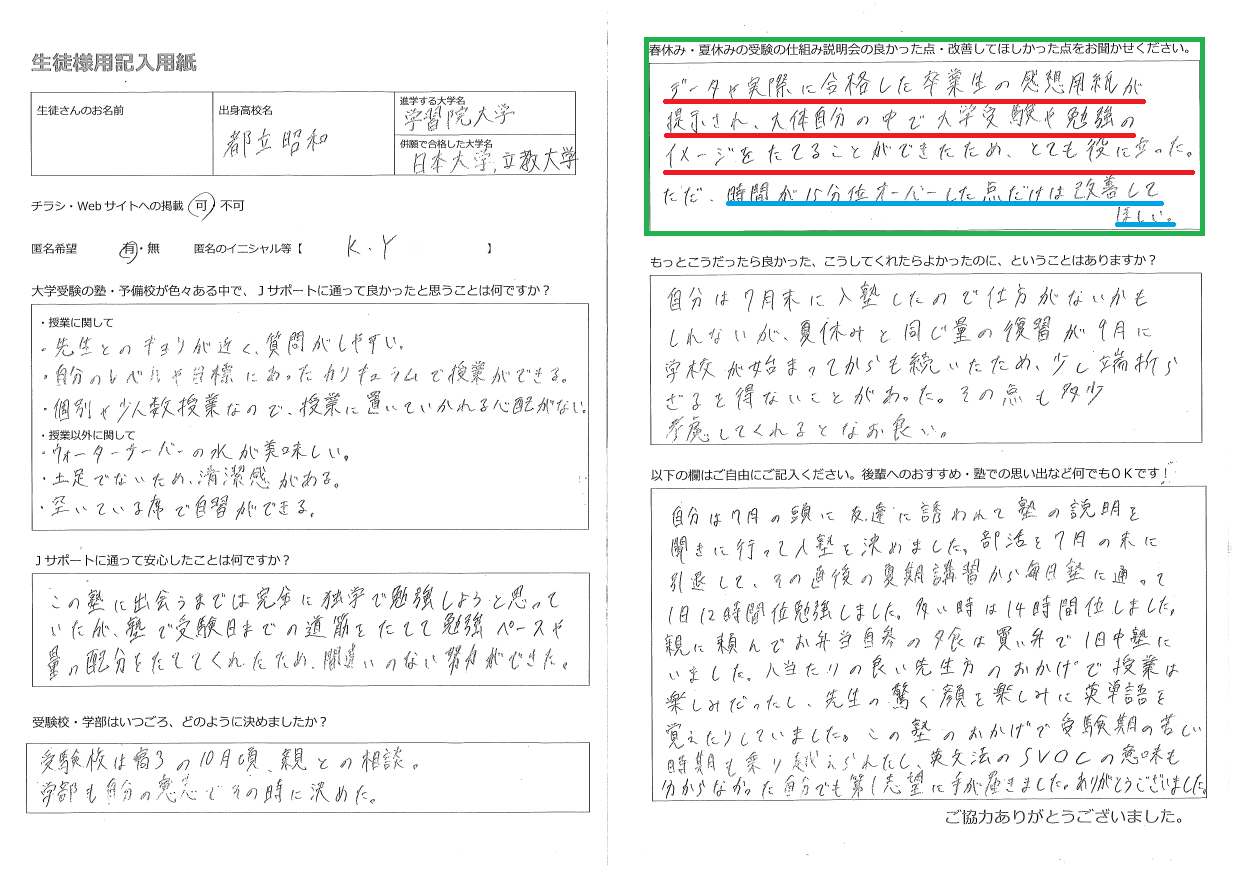 生徒様用記入用紙
生徒さんのお名前
出身高校名
都立昭和
進学する大学名
学習院大学
併願で合格した大学名
日本大学,立教大学
チラシ・Webサイトへの掲載 可 不可
匿名希望 有・無 匿名のイニシャル等【 K.Y 】
大学受験の塾・予備校が色々ある中で、Jサポートに通って良かったと思うことは何ですか?
・授業に関して
・先生とのキョリが近く、質問がしやすい。
・自分のレベルや目標にあったカリキュラムで授業ができる。
・個別や少人数授業なので、授業に置いていかれる心配がない。
・授業以外に関して
・ウォーターサーバーの水が美味しい。
・土足でないため、清潔感がある。
・空いている席で自習ができる。
Jサポートに通って安心したことは何ですか?
この塾に出会うまでは完全に独学で勉強しようと思って
いたが、塾で受験日までの道筋をたてて勉強ペースや
量の配分をたててくれたため、間違いのない努力ができた。
受験校・学部はいつごろ、どのように決めましたか?
受験校は高3の10月頃、親との相談。
学部も自分の意志でその時に決めた。
春休み・夏休みの受験の仕組み説明会の良かった点・改善してほしかった点をお聞かせください。
データや実際に合格した卒業生の感想用紙が
提示され、大体自分の中で大学受験や勉強の
イメージをたてることができたため、とても役に立った。
ただ、時間が15分位オーバーした点だけは改善して
ほしい。
もっとこうだったら良かった、こうしてくれたらよかったのに、ということはありますか?
自分は7月末に入塾したので仕方がないかも
しれないが、夏休みと同じ量の復習が9月に
学校が始まってからも続いたため、少し端折ら
ざるを得ないことがあった。その点も多少
考慮してくれるとなお良い。
以下の欄はご自由にご記入ください。後輩へのおすすめ・塾での思い出など何でもOKです!
自分は7月の頭に友達に誘われて塾の説明を
聞きに行って入塾を決めました。部活を7月の末に
引退して、その直後の夏期講習から毎日塾に通って
1日12時間位勉強しました。多い時は14時間位しました。
親に頼んでお弁当自参の夕食は買い弁で1日中塾に
いました。人当たりの良い先生方のおかげで授業は
楽しみだったし、先生の驚く顔を楽しみに英単語を
覚えたりしていました。この塾のおかげで受験期の苦しい
時期も乗り越えられたし、英文法のSVOCの意味も
分からなかった自分でも第1志望に手が届きました。ありがとうございました。
ご協力ありがとうございました。